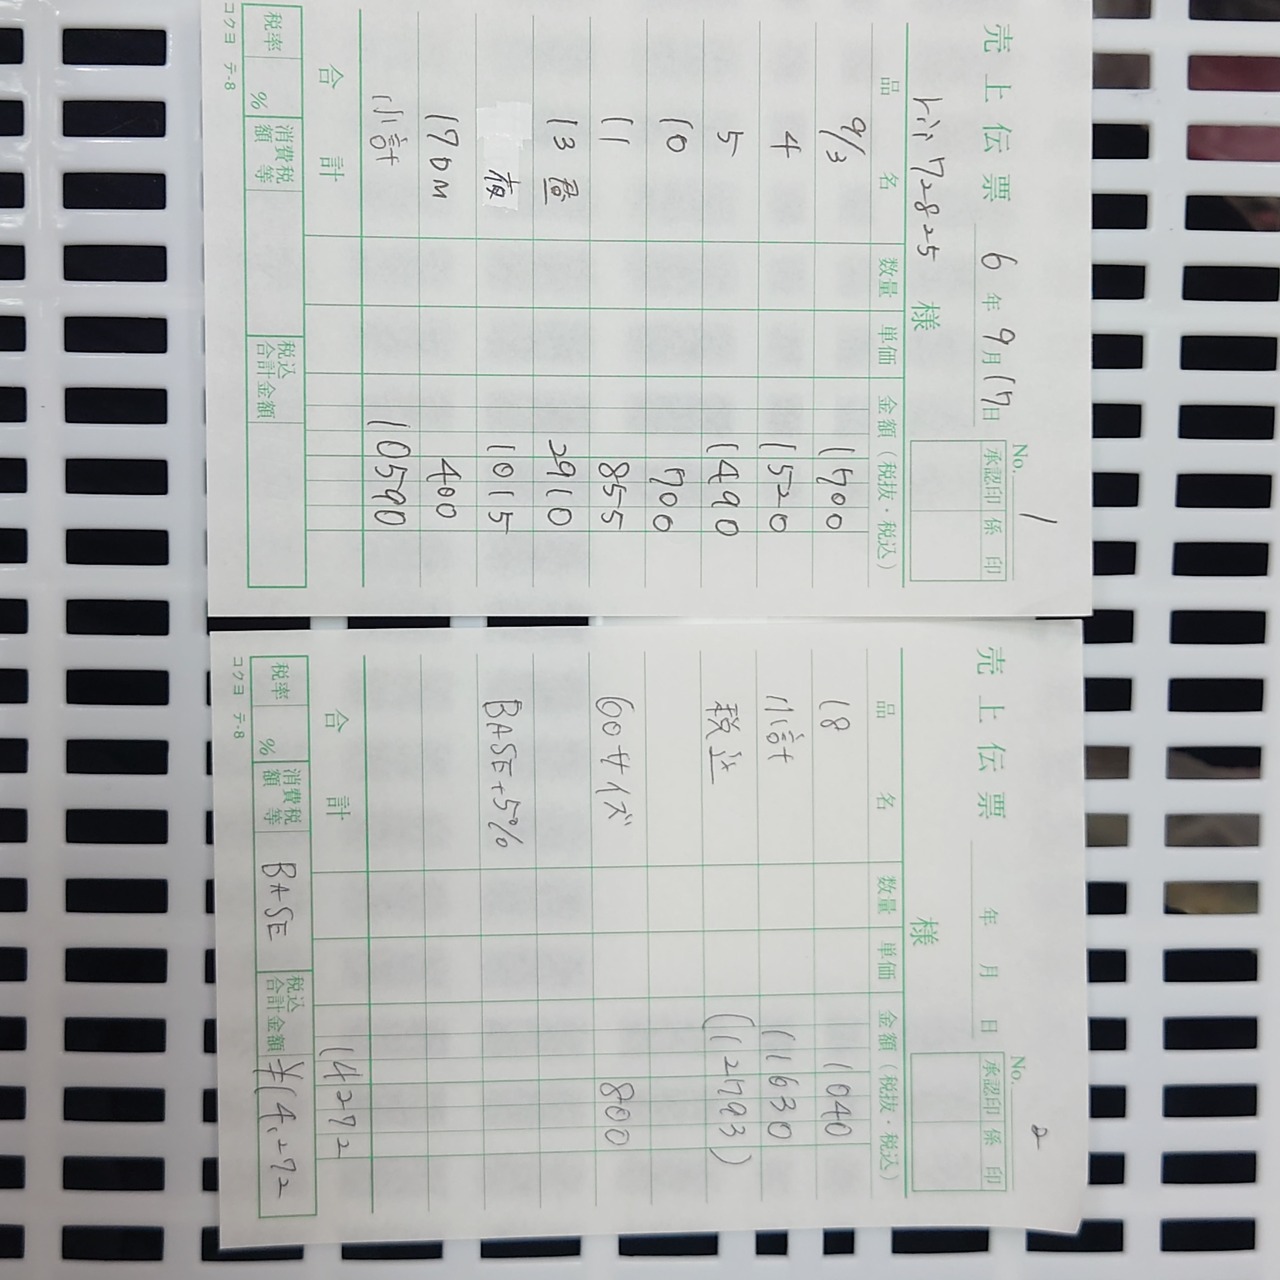 売上伝票
No. 1
6年9月17日
承認印 係印
172825 様
品名 数量 単価 金額（税抜・税込）
9/3 1700
4 1520
5 1490
10 700
11 855
13 昼 2910
夜 1015
17 DM 400
小計 10590
合計
税率 % 消費税額等 税込合計金額
コクヨ テ-8
売上伝票
No. 2
年 月 日
承認印 係印
様
品名 数量 単価 金額（税抜・税込）
18 1040
小計 11630
税込 (12793)
60サイズ 800
BASE+5%
合計 14272
税率 % 消費税額等 BASE 税込合計金額 ¥14,272
コクヨ テ-8